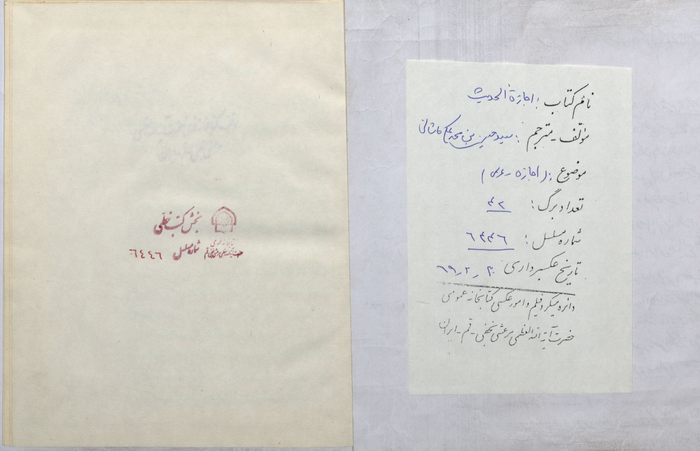 نام کتاب: اجازة الحدیث
مؤلف - مترجم: سید حسین بن محمد علی کاشانی
موضوع: (اجازه - عربی)
تعداد برگ: ۴۲
شماره مسلسل: ۶۴۴۶
تاریخ عکسبرداری: ۶۹٫۲٫۲
دائره میکروفیلم و امور عکسی کتابخانه عمومی
حضرت آیة الله العظمی مرعشی نجفی - قم - ایران
بخش کتب خطی
شماره مسلسل ۶٤٤۶